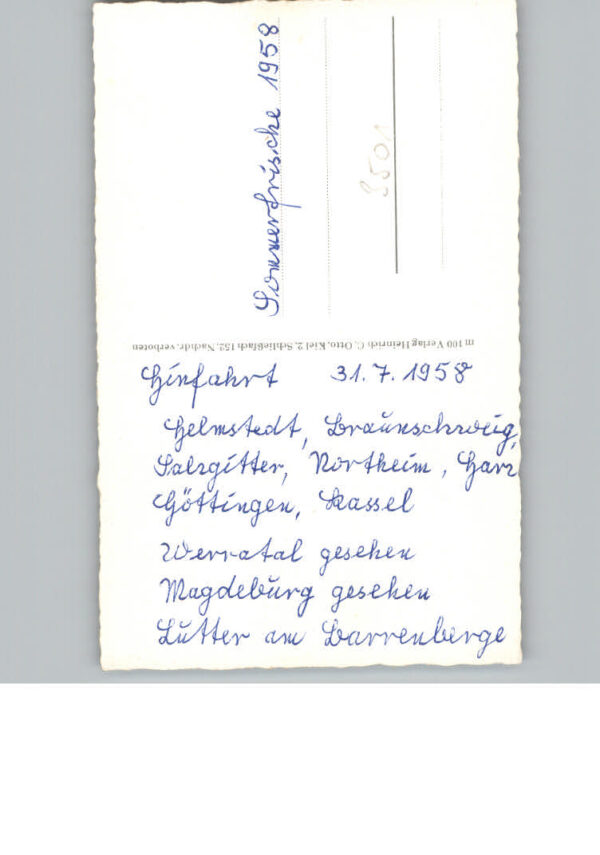 Sommerfrische 1958
3501
m 100 Verlag Heinrich C. Otto, Kiel 2, Schließfach 152, Nachdr. verboten
Hinfahrt 31. 7. 1958
Helmstedt, Braunschweig,
Salzgitter, Northeim, Harz
Göttingen, Kassel
Werratal gesehen
Magdeburg gesehen
Lutter am Barrenberge